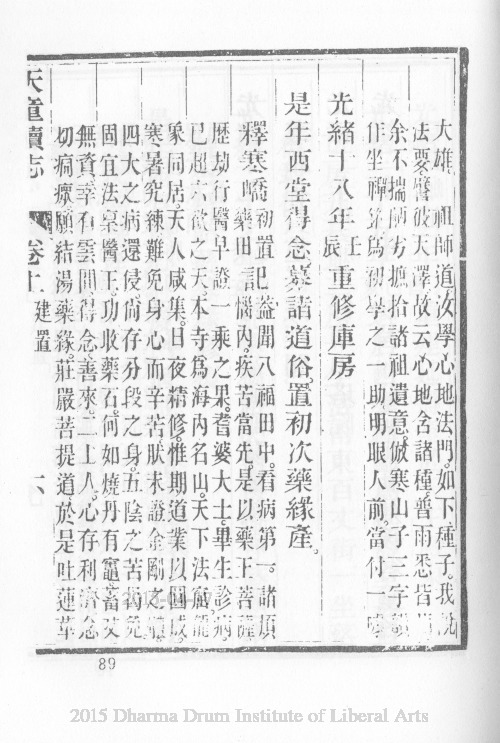 大雄 祖師道汝學心地法門如下種子我說
法要譬彼天澤故云心地含諸種普雨悉皆
余不揣陋劣摭拾諸祖遺意倣寒山子三字
作坐禪箴為初學之一助明眼人前當付一
光緒十八年壬辰重修庫房
是年西堂得念募諸道俗置初次藥緣產
釋寒嶠初置藥田記 蓋聞八福田中看病第一諸煩
惱內疾苦當先是以藥王菩薩
歷劫行醫早證一乘之果耆婆大士畢生診病
已超六欲之天本寺為海內名山天下法
象同居天人咸集日夜精修惟期道業以圓成
寒暑究練難免身心而辛苦肽未證金剛之
四大之病還侵尙存分段之身五陰之苦
固宜法稟醫王功收藥石何如燒丹有竈蓄艾
無資幸有雲間得念善來二上人心存利濟念
切痌瘝願結湯藥緣莊嚴菩提道於是吐蓮華
天童續志 卷十 建置
89
2015 Dharma Drum Institute of Liberal Arts